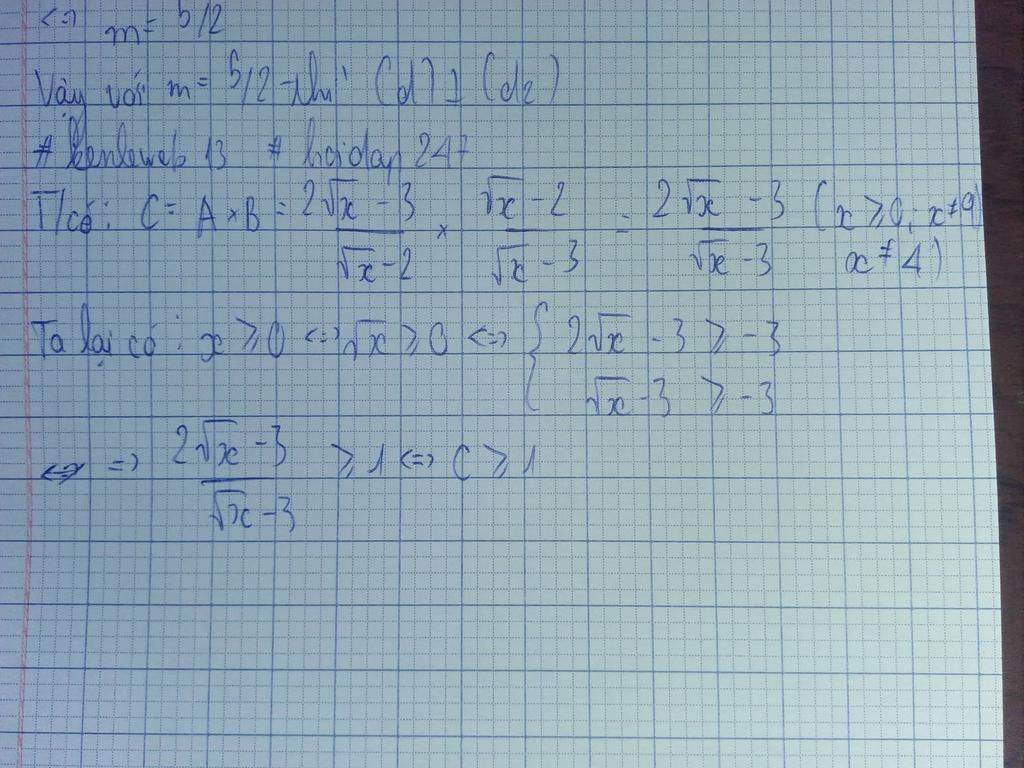 <=> m = 5/2
Vậy với m = 5/2 thì (d) ⊥ (d2)
# kenleweb 13 # hoidap 247
T/có: C = A × B = (2√x - 3)/(√x - 2) × (√x - 2)/(√x - 3) = (2√x - 3)/(√x - 3) (x ≥ 0; x ≠ 9
x ≠ 4)
Ta lại có: x ≥ 0 <=> √x ≥ 0 <=> { 2√x - 3 ≥ -3
√x - 3 ≥ -3
=> (2√x - 3)/(√x - 3) ≥ 1 <=> C ≥ 1